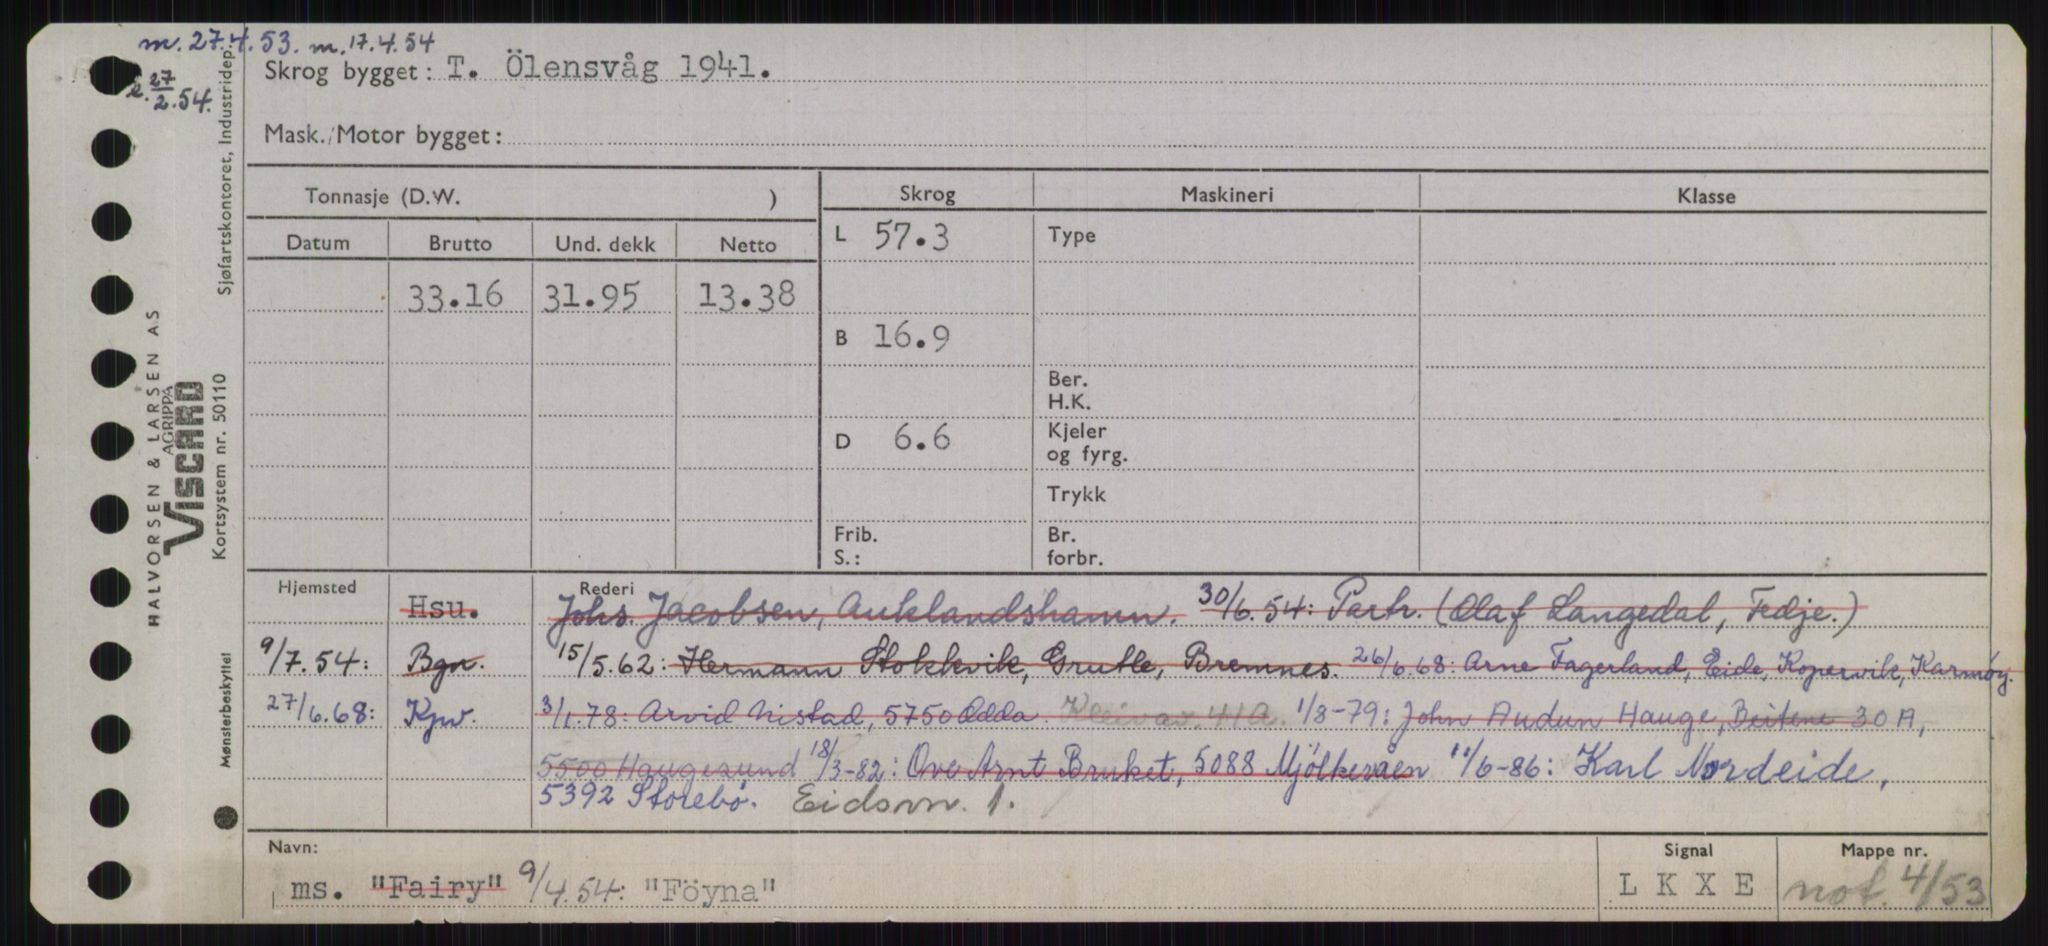 m. 27.4.53. m. 17.4.54
27/2.54.
Skrog bygget: T. Ölensvåg 1941.
Mask./Motor bygget:
Tonnasje (D.W. )
Skrog Maskineri Klasse
Datum Brutto Und. dekk Netto
L 57.3 Type
33.16 31.95 13.38
B 16.9
Ber.
H.K.
D 6.6 Kjeler
og fyrg.
Trykk
Frib. Br.
S.: forbr.
Hjemsted Rederi
Hsu. Johs. Jacobsen, Auklandshamn. 30/6.54: Partr. (Olaf Langedal, Fedje.)
9/7.54: Bgn. 15/5.62: Hermann Stokkvik, Grutle, Bremnes. 26/6.68: Arne Fagerland, Eide, Kopervik, Karmøy.
27/6.68: Kpv. 3/1.78: Arvid Nistad, 5750 Odda. Kleivav. 41A. 1/8-79: John Audun Hauge, Beitene 30 A,
5500 Haugesund 18/3-82: Ove Arnt Bruket, 5088 Mjölkeråen 11/6-86: Karl Nordeide,
5392 Storebø. Eidsvn. 1.
Navn: Signal Mappe nr.
ms. "Fairy" 9/4.54: "Föyna" L K X E not. 4/53
HALVORSEN & LARSEN AS
AGRIPPA
VISCARD
Kortsystem nr. 50110
Sjøfartskontoret, Industridep.
Mønsterbeskyttet